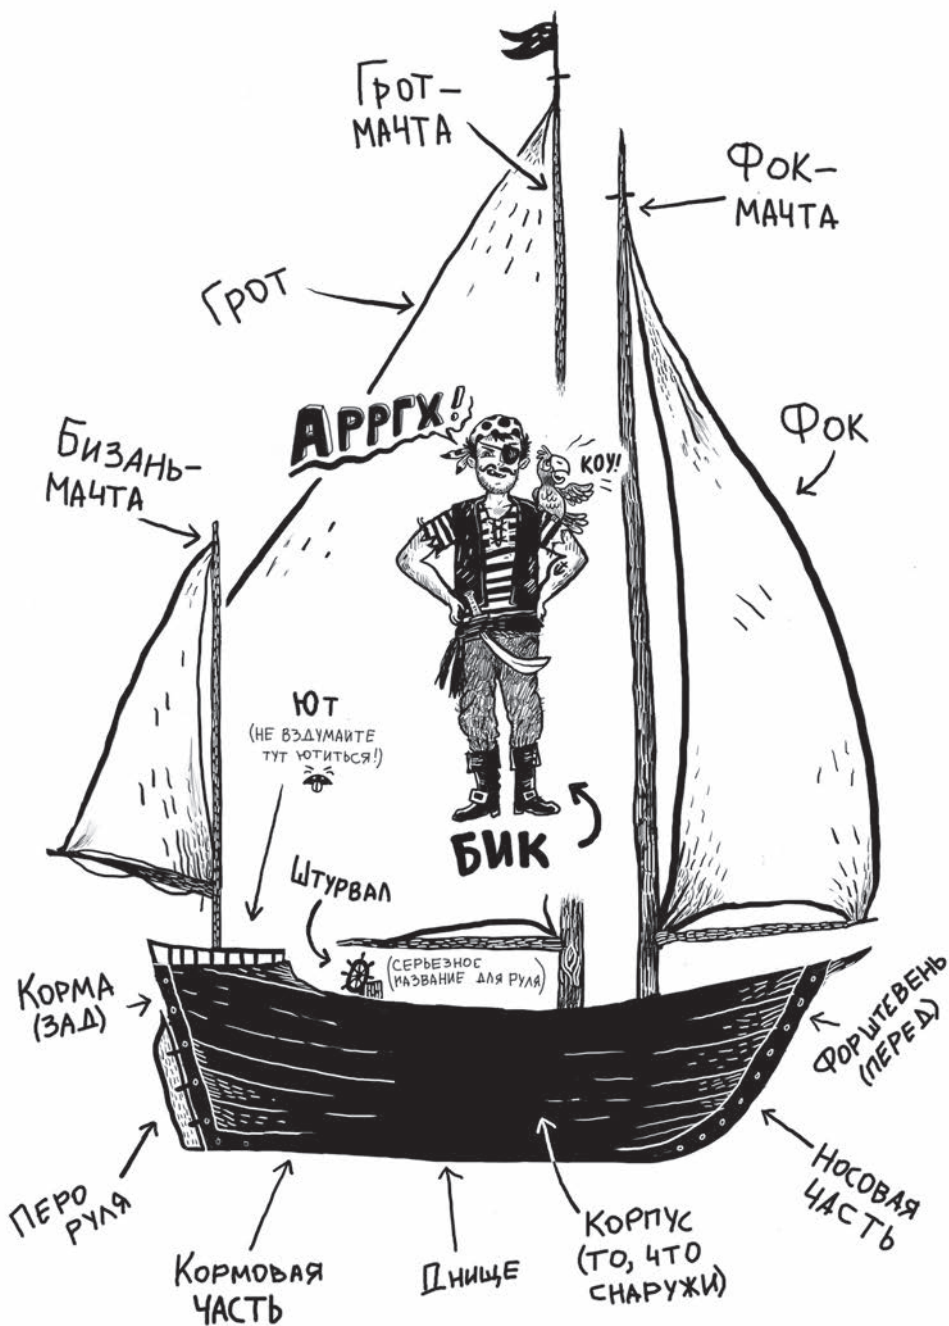 Грот-
мачта
Фок-
мачта
Грот
Арргх!
Коу!
Фок
Бизань-
мачта
Ют
(не вздумайте
тут ютиться!)
Бик
Штурвал
(серьезное
название для руля)
Корма
(зад)
Форштевень
(перед)
Перо
руля
Кормовая
часть
Днище
Корпус
(то, что
снаружи)
Носовая
часть